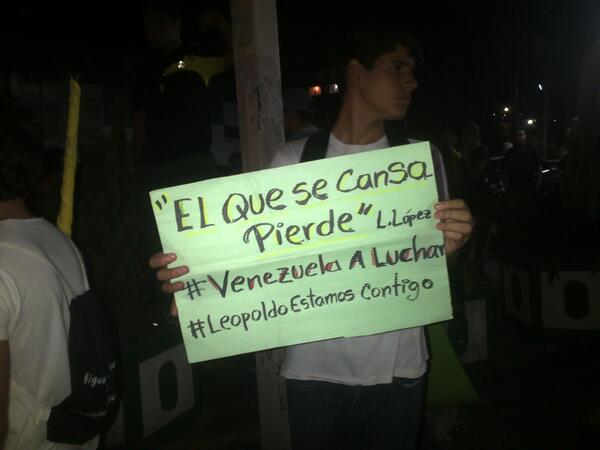 "EL Que se Cansa
Pierde" L.López
#Venezuela A Luchar
#Leopoldo Estamos Contigo